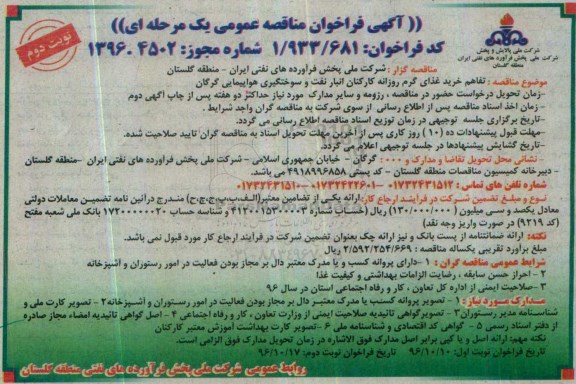 (( آگهی فراخوان مناقصه عمومی یک مرحله ای))
نوبت دوم
کد فراخوان: ۱/۹۳۳/۶۸۱ شماره مجوز: ۱۳۹۶.۴۵۰۲
شرکت ملی پالایش و پخش
شرکت ملی پخش فرآورده های نفتی ایران
منطقه گلستان
مناقصه گزار: شرکت ملی پخش فرآورده های نفتی ایران - منطقه گلستان
موضوع مناقصه: تفاهم خرید غذای گرم روزانه کارکنان انبار نفت و سوختگیری هواپیمایی گرگان
-زمان تحویل درخواست حضور در مناقصه ، رزومه و سایر مدارک مورد نیاز حداکثر دو هفته پس از چاپ آگهی دوم
-زمان اخذ اسناد مناقصه پس از اطلاع رسانی از سوی شرکت به مناقصه گران واجد شرایط .
-تاریخ برگزاری جلسه توجیهی در زمان توزیع اسناد مناقصه اطلاع رسانی می گردد.
-مهلت قبول پیشنهادات ده (۱۰) روز کاری پس از آخرین مهلت تحویل اسناد به مناقصه گران تایید صلاحیت شده.
-تاریخ گشایش پیشنهادها در جلسه توجیهی اعلام می گردد.
- نشانی محل تحویل تقاضا و مدارک و ۰۰۰ : گرگان - خیابان جمهوری اسلامی - شرکت ملی پخش فرآورده های نفتی ایران -منطقه گلستان
-دبیرخانه کمیسیون مناقصات منطقه گلستان - کد پستی ۴۹۱۸۹۹۶۸۵۸ می باشد.
شماره تلفن های تماس : ۰۱۷۳۲۶۳۱۵۱۲-۰۱۷۳۲۴۲۲۶۰۱-۰۱۷۳۲۶۳۱۵۱۰
نوع و مبلغ تضمین شرکت در فرآیند ارجاع کار:ارائه یکی از تضامین معتبر(الف،ب،پ،ج،چ،ح) مندرج درآئین نامه تضمین معاملات دولتی
معادل یکصد و سی میلیون (۱۳۰/۰۰۰/۰۰۰) ریال (حساب شماره ۴۱۲۰۰۱۵۳۰۰۰۳ و شناسه حساب ۱۷۲۰۰۰۰۰۲۰ بانک ملی شعبه مفتح
(کد ۹۲۱۹) در صورت واریز وجه نقد)
نکته: ارائه ضمانتنامه از پست بانک و نیز ارائه چک بعنوان تضمین شرکت در فرآیند ارجاع کار مورد قبول نمی باشد.
مبلغ برآورد تقریبی یکساله مناقصه : ۲/۵۹۲/۲۵۴/۶۶۹ ریال
شرایط عمومی مناقصه گران : ۱ -دارای پروانه کسب و یا مدرک معتبر دال بر مجاز بودن فعالیت در امور رستوران و آشپزخانه
۲ - احراز حسن سابقه ، رضایت الزامات بهداشتی و کیفیت غذا
۳ -صلاحیت ایمنی از اداره کل تعاون ، کار و رفاه اجتماعی استان در سال ۹۶
مدارک مورد نیاز : ۱ - تصویر پروانه کسب یا مدرک معتبر دال بر مجاز بودن فعالیت در امور رستوران و آشپزخانه۲ - تصویر کارت ملی و
شناسنامه مدیر رستوران۳ - تصویرگواهی تائیدیه صلاحیت ایمنی از وزارت تعاون ، کار و رفاه اجتماعی ۴ - اصل گواهی تائیدیه امضاء مجاز صادره
از دفتر اسناد رسمی ۵ - گواهی کد اقتصادی و شناسنامه ملی ۶ -تصویر کارت بهداشت آموزش معتبر کارکنان
نکته مهم: ارائه اصل و یا کپی برابر اصل مدارک فوق الاشاره در زمان تحویل مدارک فوق الزامی است.
تاریخ فراخوان نوبت اول: ۹۶/۱۰/۱۰ تاریخ فراخوان نوبت دوم: ۹۶/۱۰/۱۷
روابط عمومی شرکت ملی پخش فرآورده های نفتی منطقه گلستان